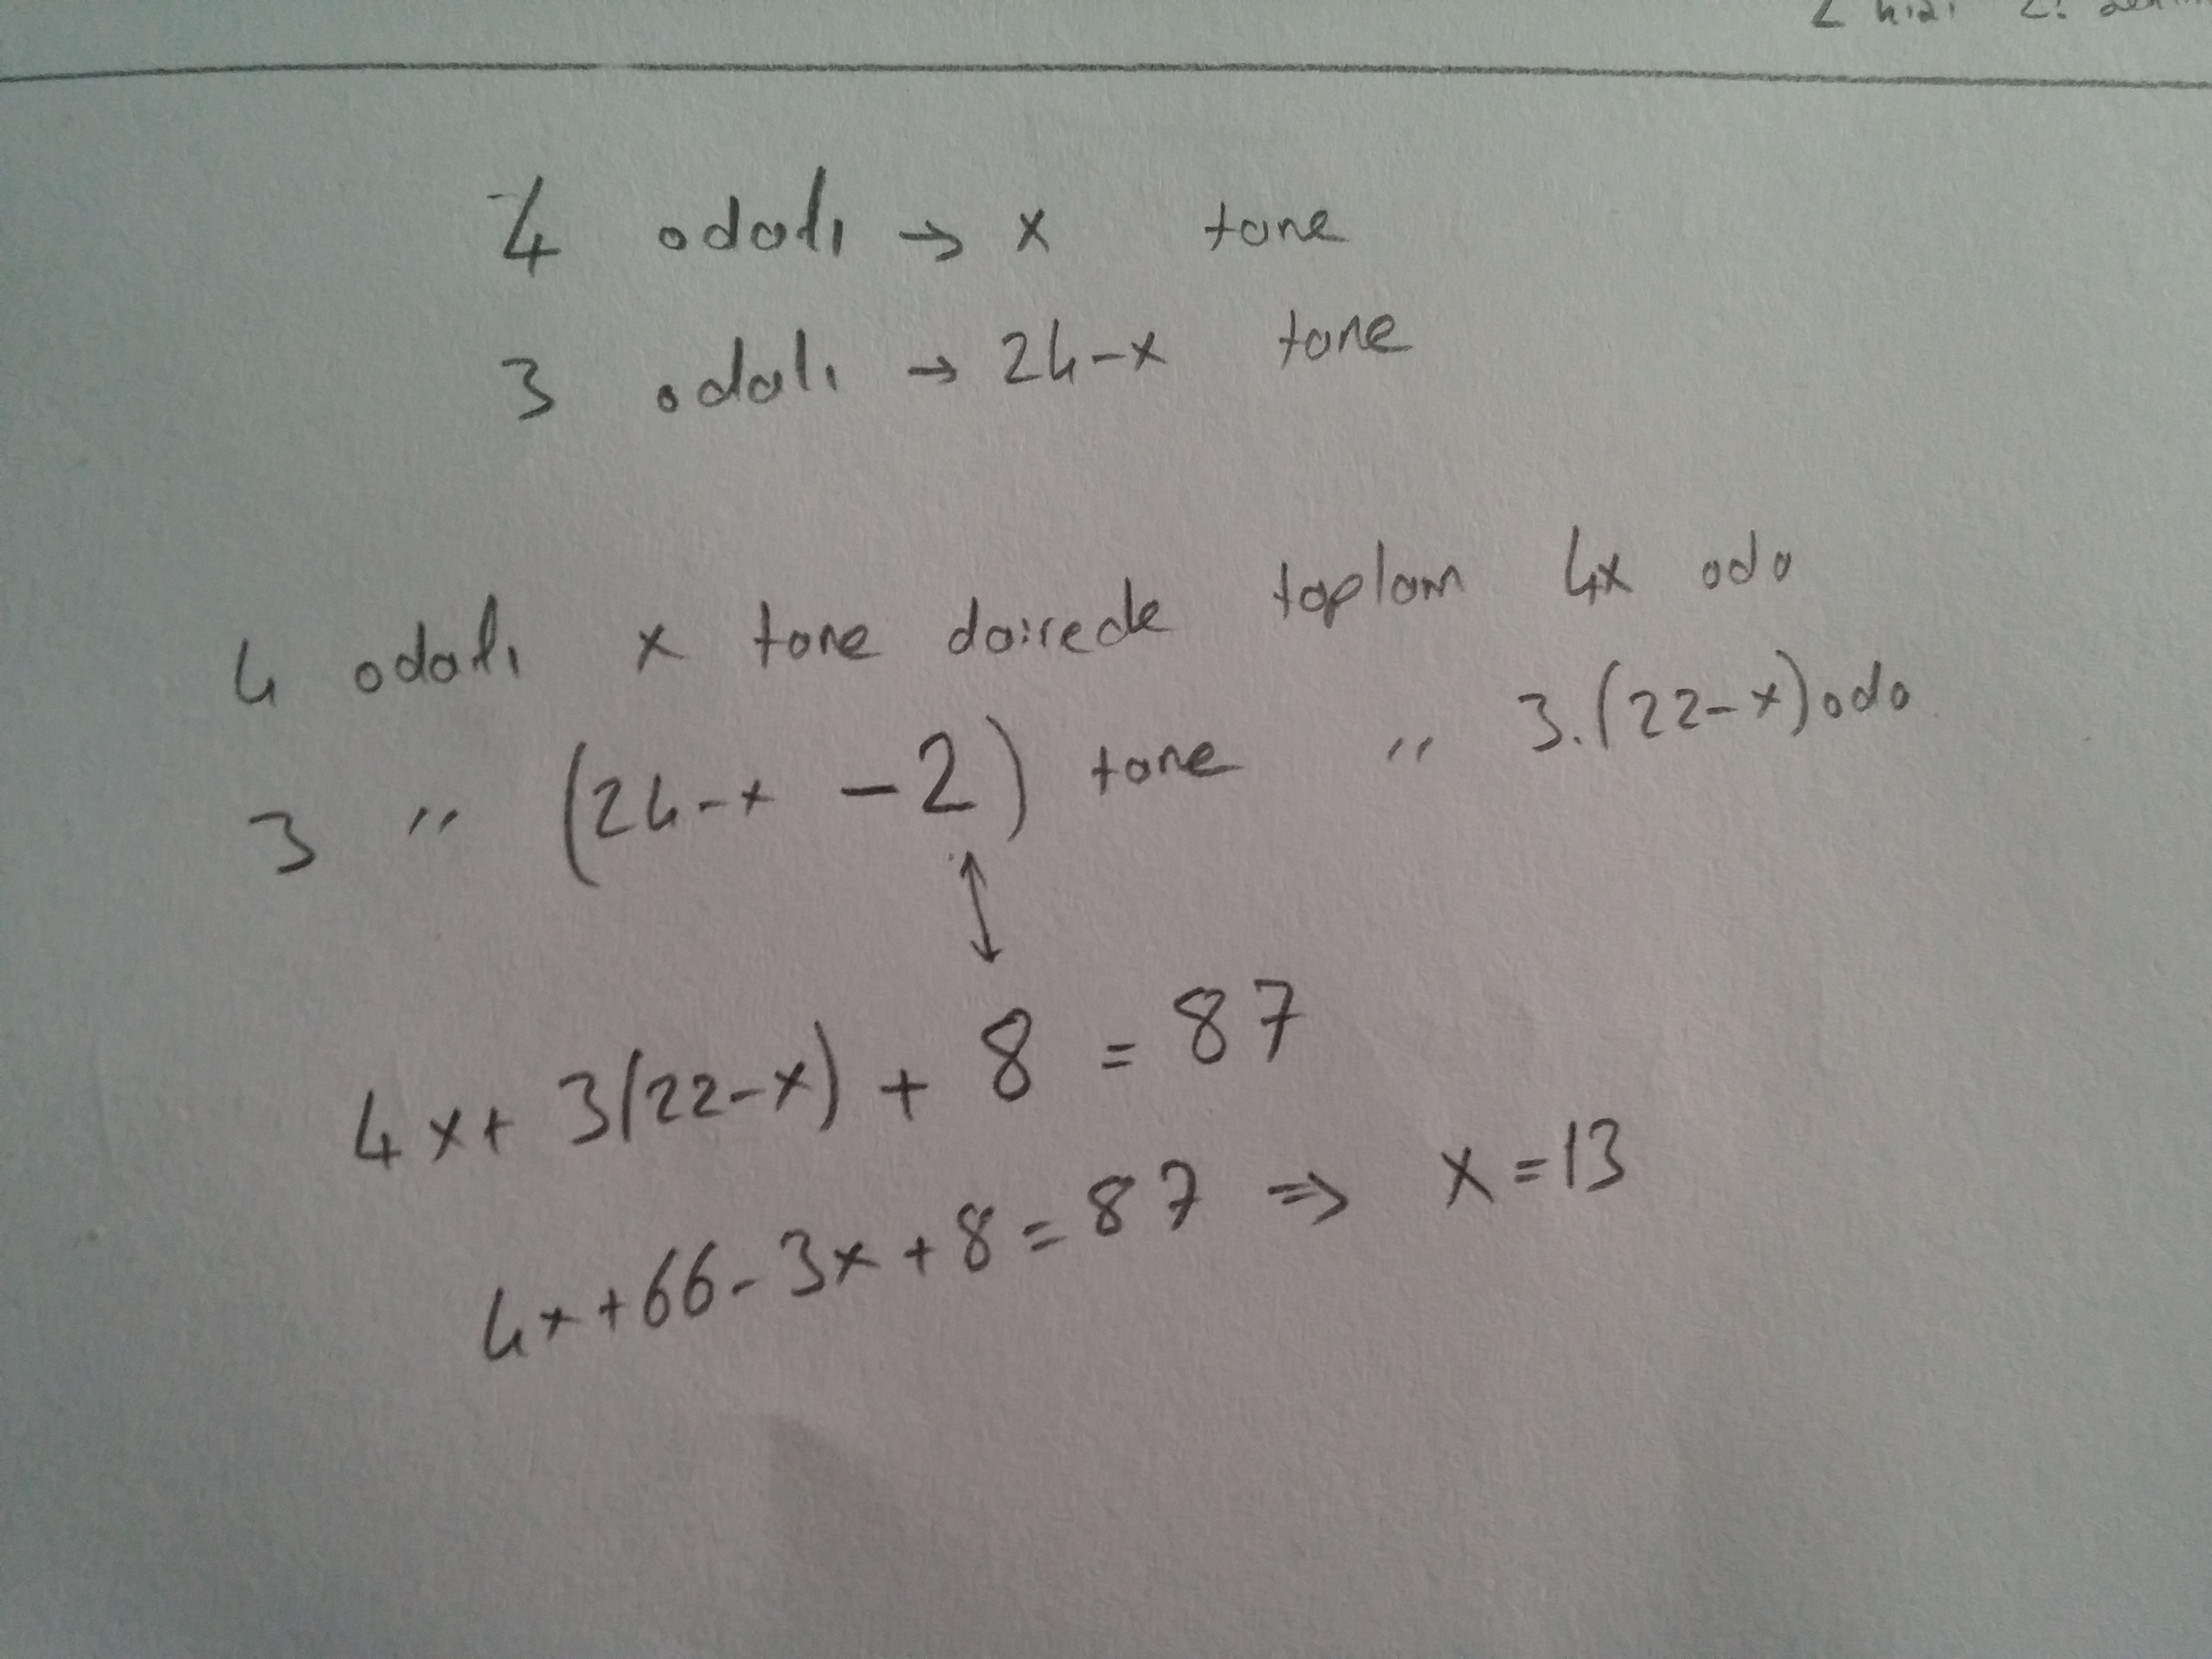 4 odalı → x tane
3 odalı → 24-x tane
4 odalı x tane dairede toplam 4x oda
3 " (24-x -2) tane " 3.(22-x) oda
4x+ 3(22-x) + 8 = 87
4x+66-3x+8=87 ⇒ x=13